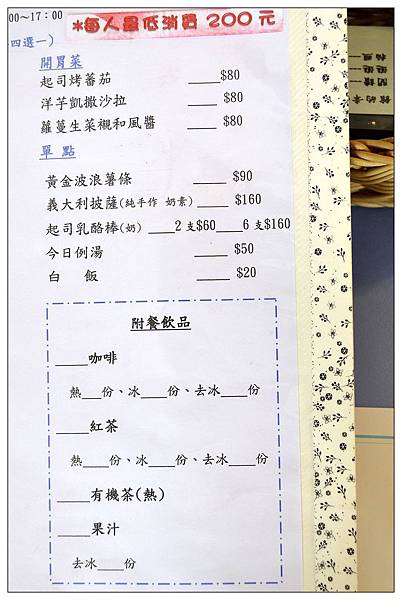 00～17：00
*每人最低消費 200 元
四選一)
開胃菜
起司烤蕃茄 ____$80
洋芋凱撒沙拉 ____ $80
蘿蔓生菜襯和風醬 ____ $80
單 點
黃金波浪薯條 ____ $90
義大利披薩(純手作 奶素)____ $160
起司乳酪棒(奶) ___2 支$60___6 支$160
今日例湯 ____ $50
白 飯 ____ $20
附餐飲品
____咖啡
熱___份、冰___份、去冰___份
____紅茶
熱___份、冰___份、去冰___份
____有機茶(熱)
____果汁
去冰___份